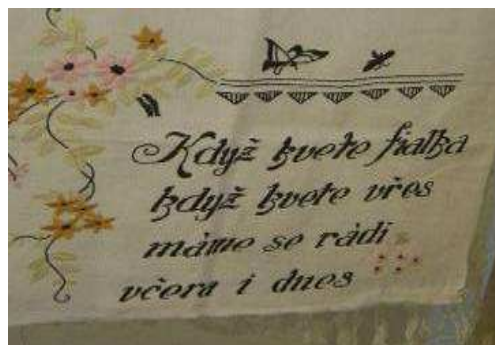 Když kvete fialka
když kvete vřes
máme se rádi
včera i dnes